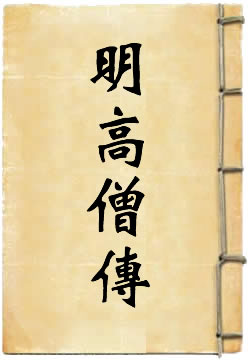 明高僧傳